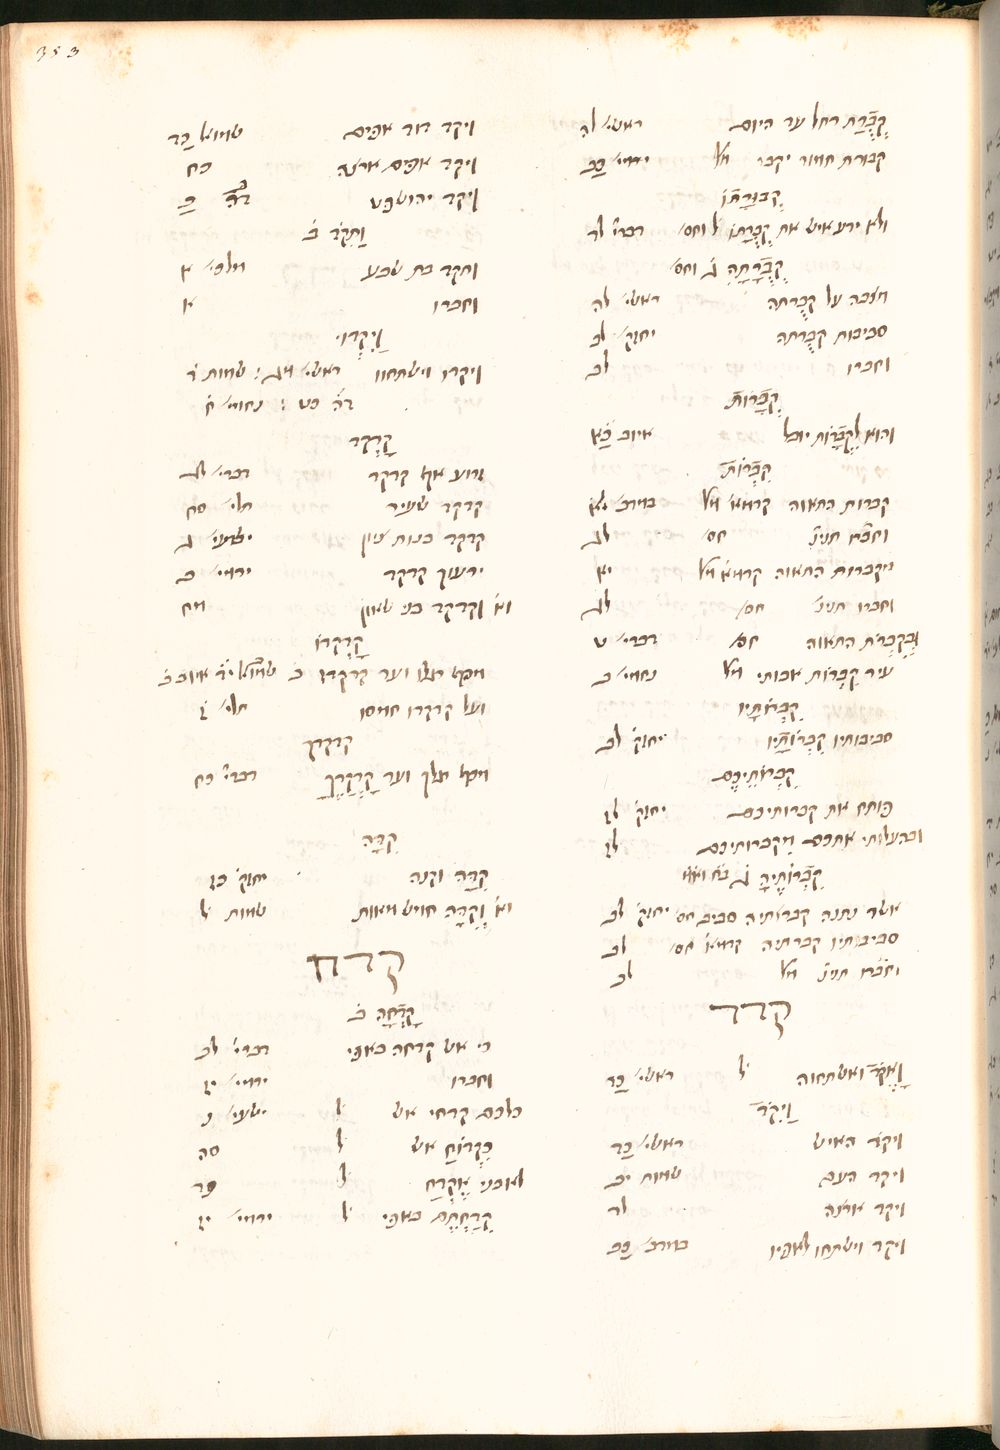 353
קְבֻרַת רחל עד היום ראשי׳ לה
קבורת חמור יקבר ל׳ ירמי׳ כב
קְבוּרָתוֹ
ולא ידע איש את קְבֻרָתוֹ ל׳ וחס׳ דברי׳ לד
קְבֻרָתָהּ ג׳ וחס׳
מצבה על קְבֻרתה ראשי׳ לה
סביבות קְבֻרתה יחזק׳ לב
וחברו לב
קְבָרוֹת
והוא לִקְבָרוֹת יובל איוב כא
קִבְרוֹת
קברות התאוה במדב׳ יא
וחברו תניינ׳ חס׳ לג
מקברות התאוה יא
וחברו תנינ׳ חס׳ לג
וּבְקִבְרֹת התאוה חס׳ דברי׳ ט
עיר קִבְרוֹת אבותי מל׳ נחמי׳ ב
קִבְרוֹתָיו
סביבותיו קִבְרוֹתָיו יחזק׳ לב
קִבְרוֹתֵיכֶם
פותח את קברותיכם יחזק׳ לז
ובהעלותי אתכם מִקברותיכם לז
קִבְרוֹתֶיהָ ג׳
אשר נתנה קברותיה סביב חס׳ יחזק׳ לב
סביבותיו קברתיה חס׳ לב
וחברו תנינ׳ מל׳ לב
קדד
וָאֶקֹּד ואשתחוה ל׳ ראשי׳ כד
וַיִּקֹּד
ויקד האיש ראשי׳ כד
ויקד העם שמות יב
ויקד ארצה לד
ויקד וישתחו לאפיו במדב׳ כב
ויקד דוד אפים שמואל כד
ויקד אפים ארצה כח
ויקד יהושפט דה׳ כ
וַתִּקֹּד ב׳
ותקד בת שבע מלכי׳ א
וחברו א׳
וַיִּקְּדוּ
ויקדו וישתחוו ראשי׳ מג: שמות ד
דה׳ כט: נחמי׳ ח
קָדְקֹד
זרוע אף קדקד דברי׳ לג
קדקד שיער תלי׳ סח
קדקד בנות ציון ישעי׳ ג
ירעוך קדקד ירמי׳ ב
וא׳ וְקדקד בני שאון מח
קָדְקֳדוֹ
מכף רגלו ועד קדקדו ב׳ שמואל יד איוב ב׳
ועל קדקדו חמסו תלי׳ ז
קדקדך
מכף רגלך ועד קָדְקֳדֶךָ דברי׳ כח
קִדָּה
קִדָּה וקנה יחזק׳ כז
וא׳ וְקִדָּה חמש מאות שמות ל
קדח
קָדְחָה ב׳
כי אש קדחה באפי דברי׳ לב
וחברו ירמי׳ יז
כלכם קדחי אש ל׳ ישעי׳ נ
כִּקְדוֹחַ אש ל׳ סה
לאבני אֶקְדָּח ל׳ נד
קְדַחְתֶּם באפי ל׳ ירמי׳ יז